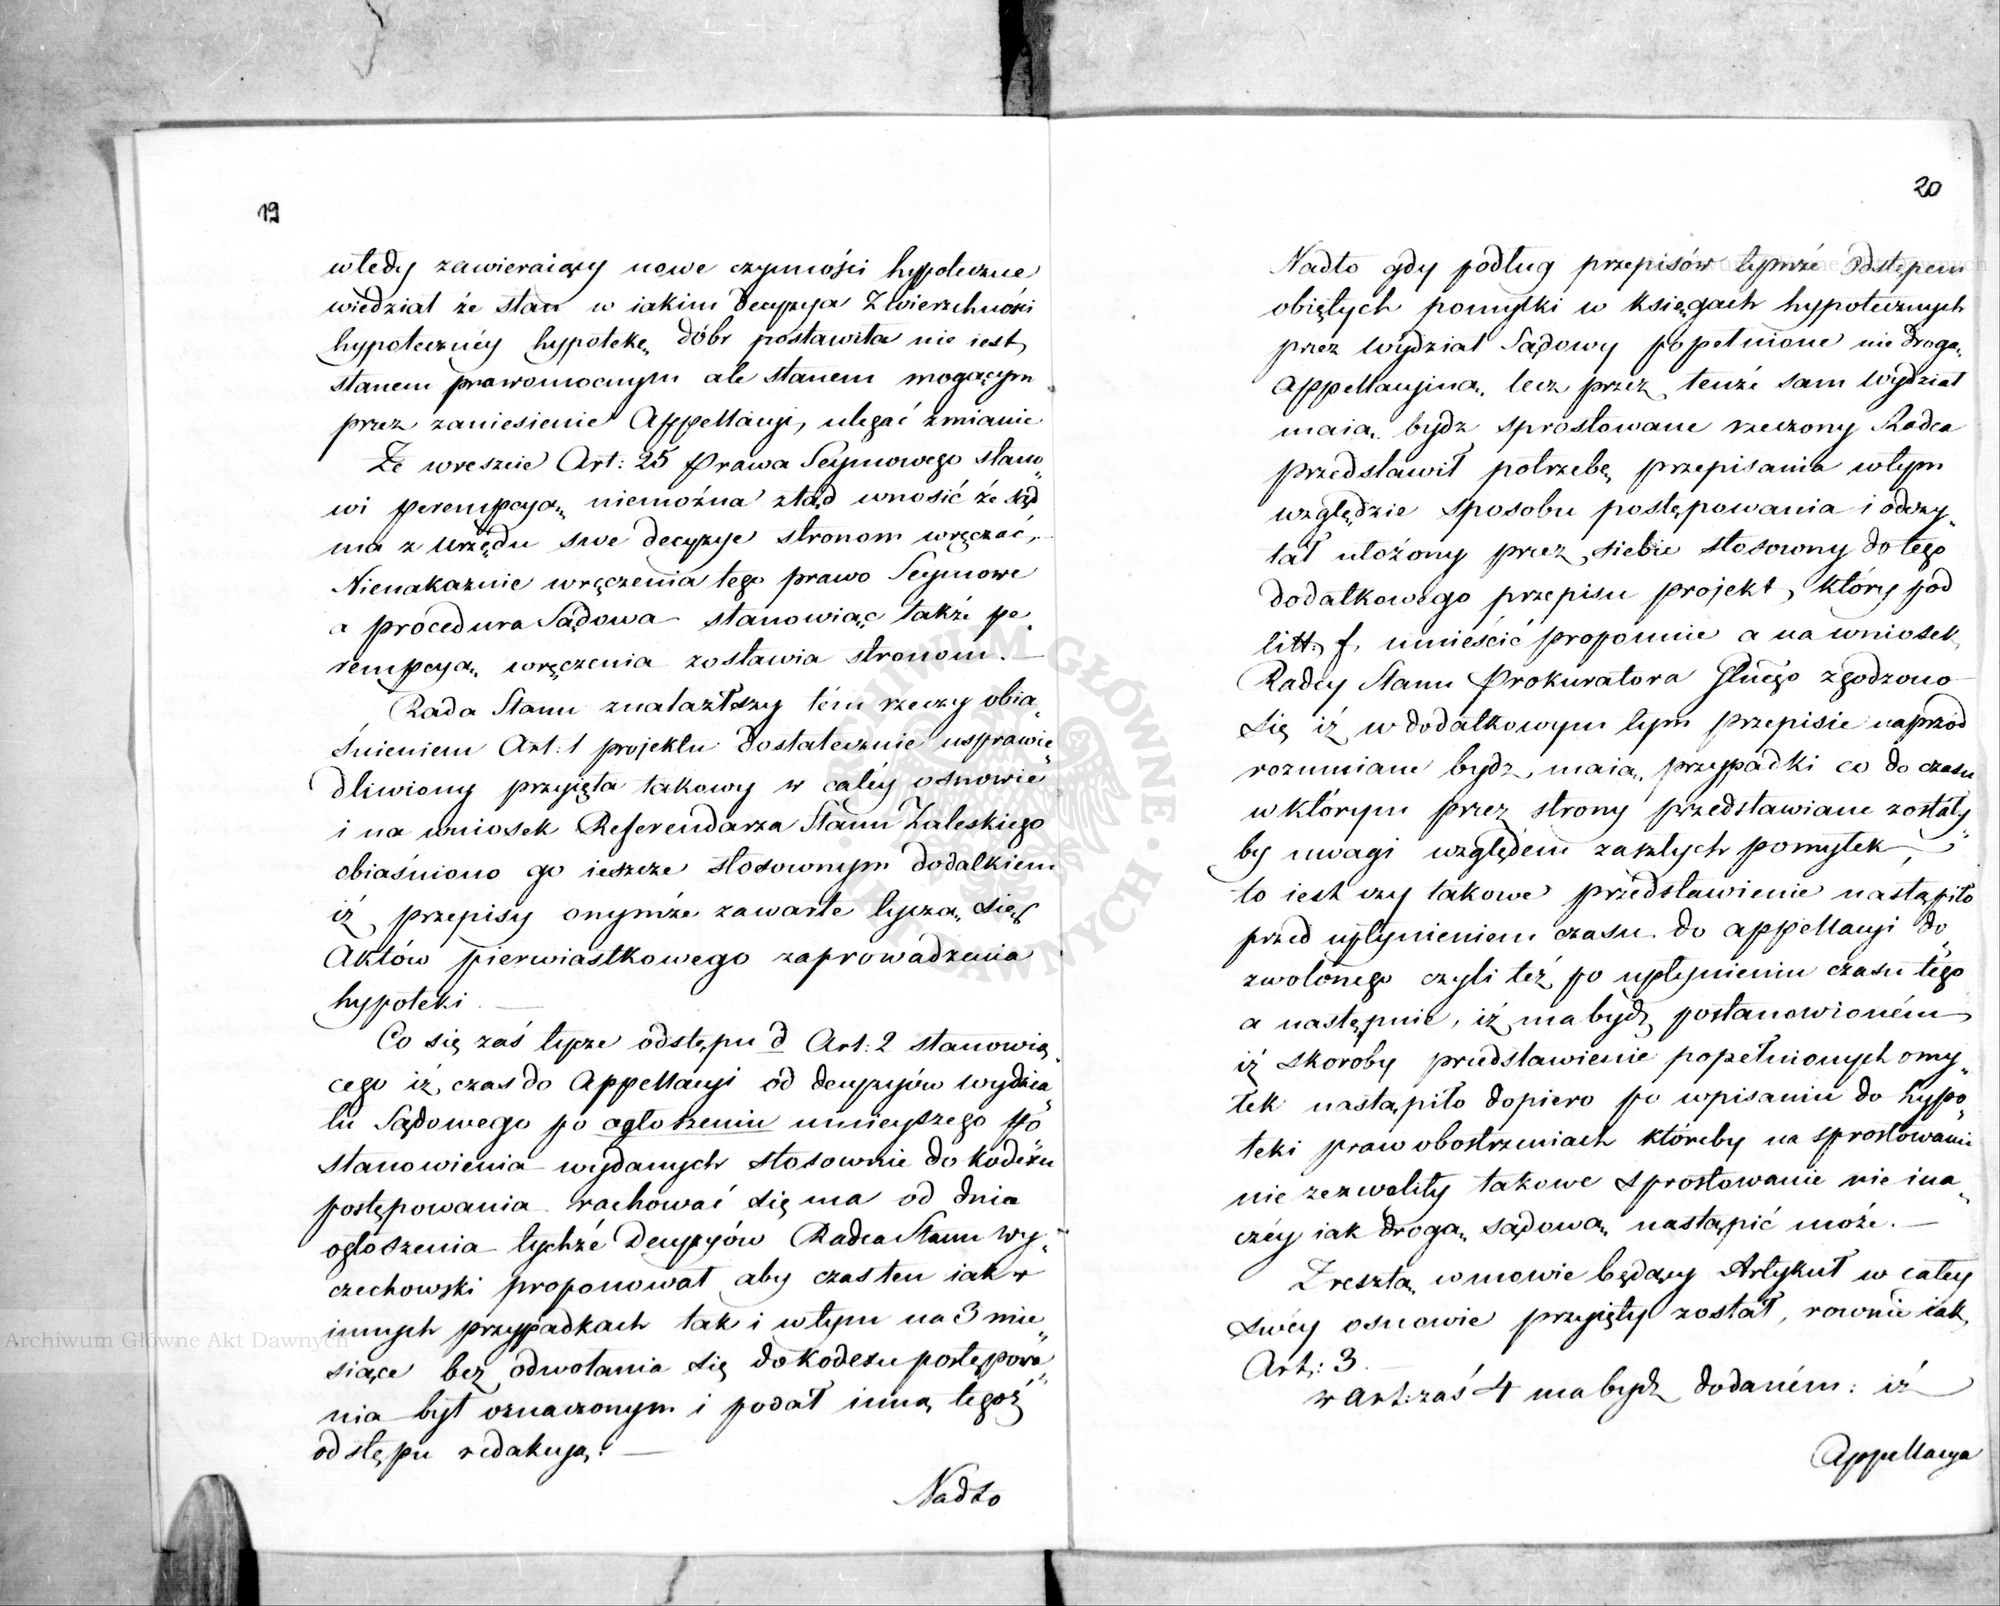 19
wtedy zawieraiący nowe czynności hypoteczne
wiedział że stan w iakim Decyzya Zwierzchności
hypotecznéy hypotekę dóbr postawiła nie iest
stanem prawomocnym ale stanem mogącym
przez zaniesienie Appellacyi, ulegać zmianie
Że wreszcie Art: 25 Prawa Seymowego stano„
wi perempcyą, niemożna ztąd wnosić że Sąd
ma z Urzędu swe decyzye stronom wręczać,
Nienakazuie wręczenia tego prawo Seymowe
a procedura Sądowa stanowiąc także pe„
rempcyą, wręczenia zostawia stronom. —
Rada Stanu znalazłszy tém rzeczy obia„
śnieniem Art: 1 projektu dostatecznie usprawie„
dliwiony przyięła takowy w całéy osnowie
i na wniosek Referendarza Stanu Zaleskiego
obiaśniono go ieszcze stosownym dodatkiem
iż przepisy onymże zawarte tyczą się
Aktów pierwiastkowego zaprowadzenia
hypoteki. —
Co się zaś tycze odstępu d Art: 2 stanowią„
cego iż czas do Appellacyi od decyzyów wydzia„
łu Sądowego po ogłoszeniu ninieyszego po„
stanowienia wydanych stosownie do Kodexu
postępowania rachować się ma od dnia
ogłoszenia tychże Decyzyów Radca Stanu Wy„
czechowski proponował aby czas ten iak w
innych przypadkach tak i w tym na 3 mie„
siące bez odwołania się do Kodexu postępowa„
nia był oznaczonym i podał inną tegoż
odstępu redakcyą: —
Nadto
20
Nadto gdy podług przepisów tymże odstępem
obiętych pomyłki w księgach hypotecznych
przez Wydział Sądowy popełnione nie drogą
Appellacyiną, lecz przez tenże sam Wydział
maią bydź sprostowane rzeczony Radca
przedstawił potrzebę przepisania w tym
względzie sposobu postępowania i odczy„
tał ułożony przez siebie stosowny do tego
dodatkowego przepisu projekt, który pod
litt: f. umieścić proponuie a na wniosek
Radcy Stanu Prokuratora Głnégo zgodzono
się iż w dodatkowym tym przepisie naprzód
rozumiane bydź maią przypadki co do czasu
w którym przez strony przedstawiane zostały„
by uwagi względem zaszłych pomyłek,
to iest czy takowe przedstawienie nastąpiło
przed upłynieniem czasu do appellacyi do„
zwolonego czyli też po upłynieniu czasu tego
a następnie, iż ma bydź postanowioném
iż skoroby przedstawienie popełnionych omy„
łek nastąpiło dopiero po wpisaniu do hypo„
teki praw obostrzeniach któreby na sprostowanie
nie zezwoliły takowe sprostowanie nie ina„
czéy iak drogą sądową nastąpić może. —
Zresztą w mowie będący Artykuł w całey
swéy osnowie przyięty został, rownie iak
Art: 3. —
w Art: zaś 4 ma bydź dodaném: iż
Appellacya